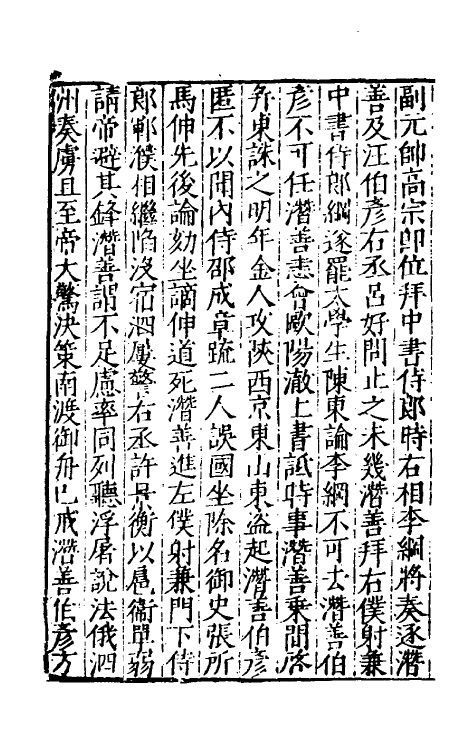 副元帥高宗卽位拜中書侍郎時右相李綱將奏逐潛
善及汪伯彥右丞呂好問止之未幾潛善拜右僕射兼
中書侍郎綱遂罷太學生陳東論李綱不可去潛善伯
彥不可任潛善恚會歐陽澈上書詆時事潛善乗間啓
并東誅之明年金人攻陝西京東山東盜起潛善伯彥
匿不以聞內侍邵成章疏二人誤國坐除名御史張所
馬伸先後論劾坐謫伸道死潛善進左僕射兼門下侍
郎鄆濮相繼陷沒宿泗屢警右丞許景衡以扈衞單弱
請帝避其鋒潛善謂不足慮率同列聽浮屠說法俄泗
洲奏虜且至帝大驚决策南渡御舟已戒潛善伯彥方